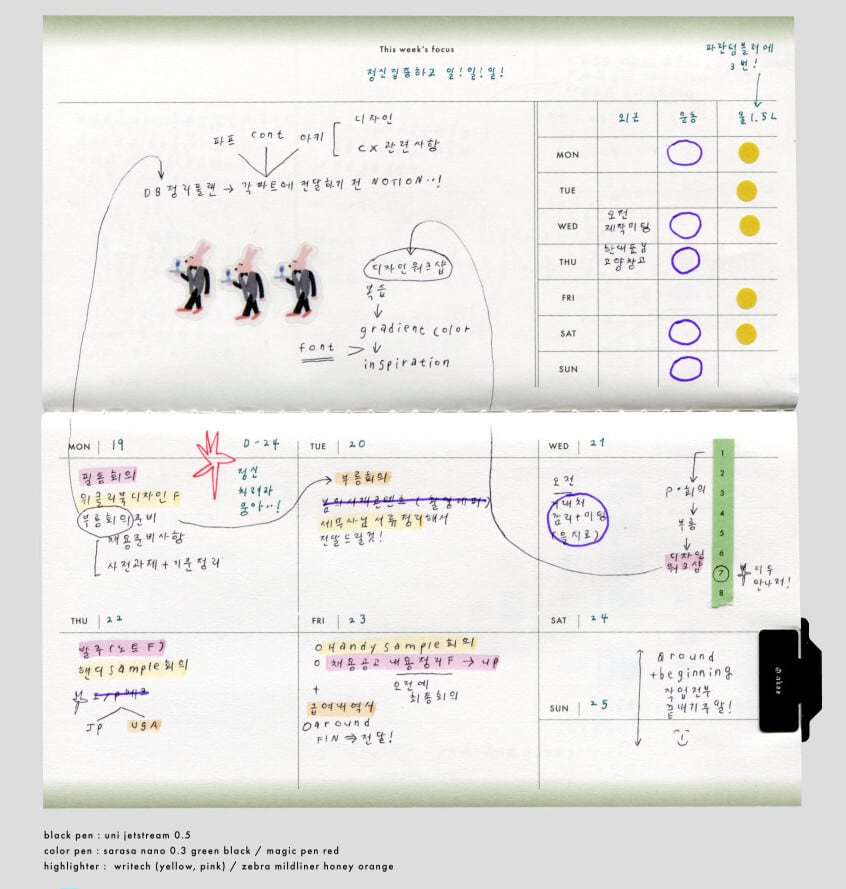 This week's focus
정신집중하고 일! 일! 일!
파란텀블러에
3번!
외근 운동 물 1.5L
MON
TUE
WED 오전
제작미팅
THU
고양창고
FRI
SAT
SUN
파트 cont 아키
디자인
CX 관련사항
DB정리플랜 → 각파트에 전달하기 전 NOTION..!
디자인워크샵
복습
gradient color
font >
inspiration
MON 19
D-24
정신
차려라
웅아..!
필동회의
위클리북디자인 F
부릉회의준비
채용준비사항
사전과제 + 기준정리
TUE 20
부릉회의
세무사님 서류정리해서
전달드릴것!
WED 21
오전
거래처
감리+미팅
(을지로)
1
2
3
4
5
6
7
8
P.회의
부릉
디자인
워크샵
만나러!
THU 22
발주(노트F)
핸디sample회의
JP USA
FRI 23
o Handy sample회의
o 채용공고 내용정리F → up
오전에
최종회의
+
급여내역서
o around
FIN ⇒ 전달!
SAT 24
SUN 25
around
+beginning
작업전부
끝내기주말!
black pen : uni jetstream 0.5
color pen : sarasa nano 0.3 green black / magic pen red
highlighter : writech (yellow, pink) / zebra mildliner honey orange